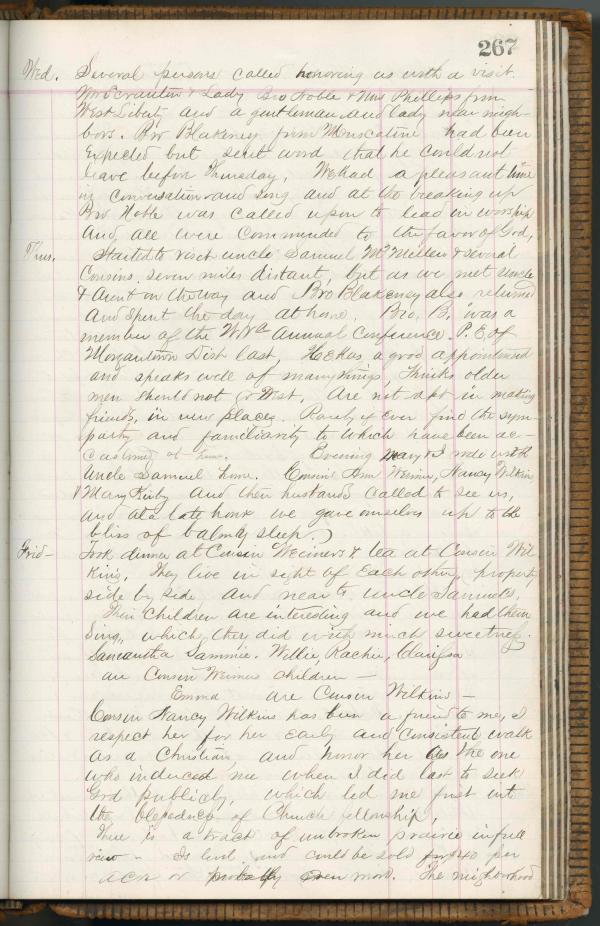 267
Wed. Several persons called honoring us with a visit.
Wm Scranton & Lady Bro Noble & Mrs Phillips from
West Liberty and a gentleman and lady near neigh-
bors. Bro Blakeney from Muscatine had been
expected but sent word that he could not
leave before Thursday. We had a pleasant time
in conversation and song and at the breaking up
Bro Noble was called upon to lead in worship
and all were commended to the favor of God,
Thus. Started to visit uncle Samuel McMillen & several
Cousins seven miles distant, but as we met Uncle
& Aunt on the way and Bro Blakeney also returned
and spent the day at home. Bro. B. was a
member of the W. Va Annual Conference. P. E. of
Morgantown Dist last. He has a good appointment
and speaks well of many things, thinks older
men should not go West, are not apt in making
friends, in new places. Rarely if ever find the sym-
pathy and familiarity to which have been ac-
customed at home. Evening Mary & I rode with
Uncle Samuel home. Cousins Ann Weimer, Nancy Wilkin
& Mary Kirby and their husbands called to see us,
and at a late hour we gave ourselves up to the
bliss of balmy sleep.)
Frid- Took dinner at Cousin Weimers & tea at Cousin Wil-
kins. They live in sight of each other, property
side by side and near to uncle Samuels.
Their children are interesting and we had them
sing, which they did with much sweetness.
Samantha Sammie. Willie, Rachie, Clarissa
are Cousin Weimers children -
Emma are Cousin Wilkins -
Cousin Nancy Wilkins has been a friend to me, I
respect her for her early and consistent walk
as a Christian, and honor her as the one
who induced me when I did last to seek
God publicly, which led me first into
the obedience of Church fellowship,
There is a tract of unbroken prairie in full
view - Is level and could be sold for $40 per
acre or probably even more. The neighborhood